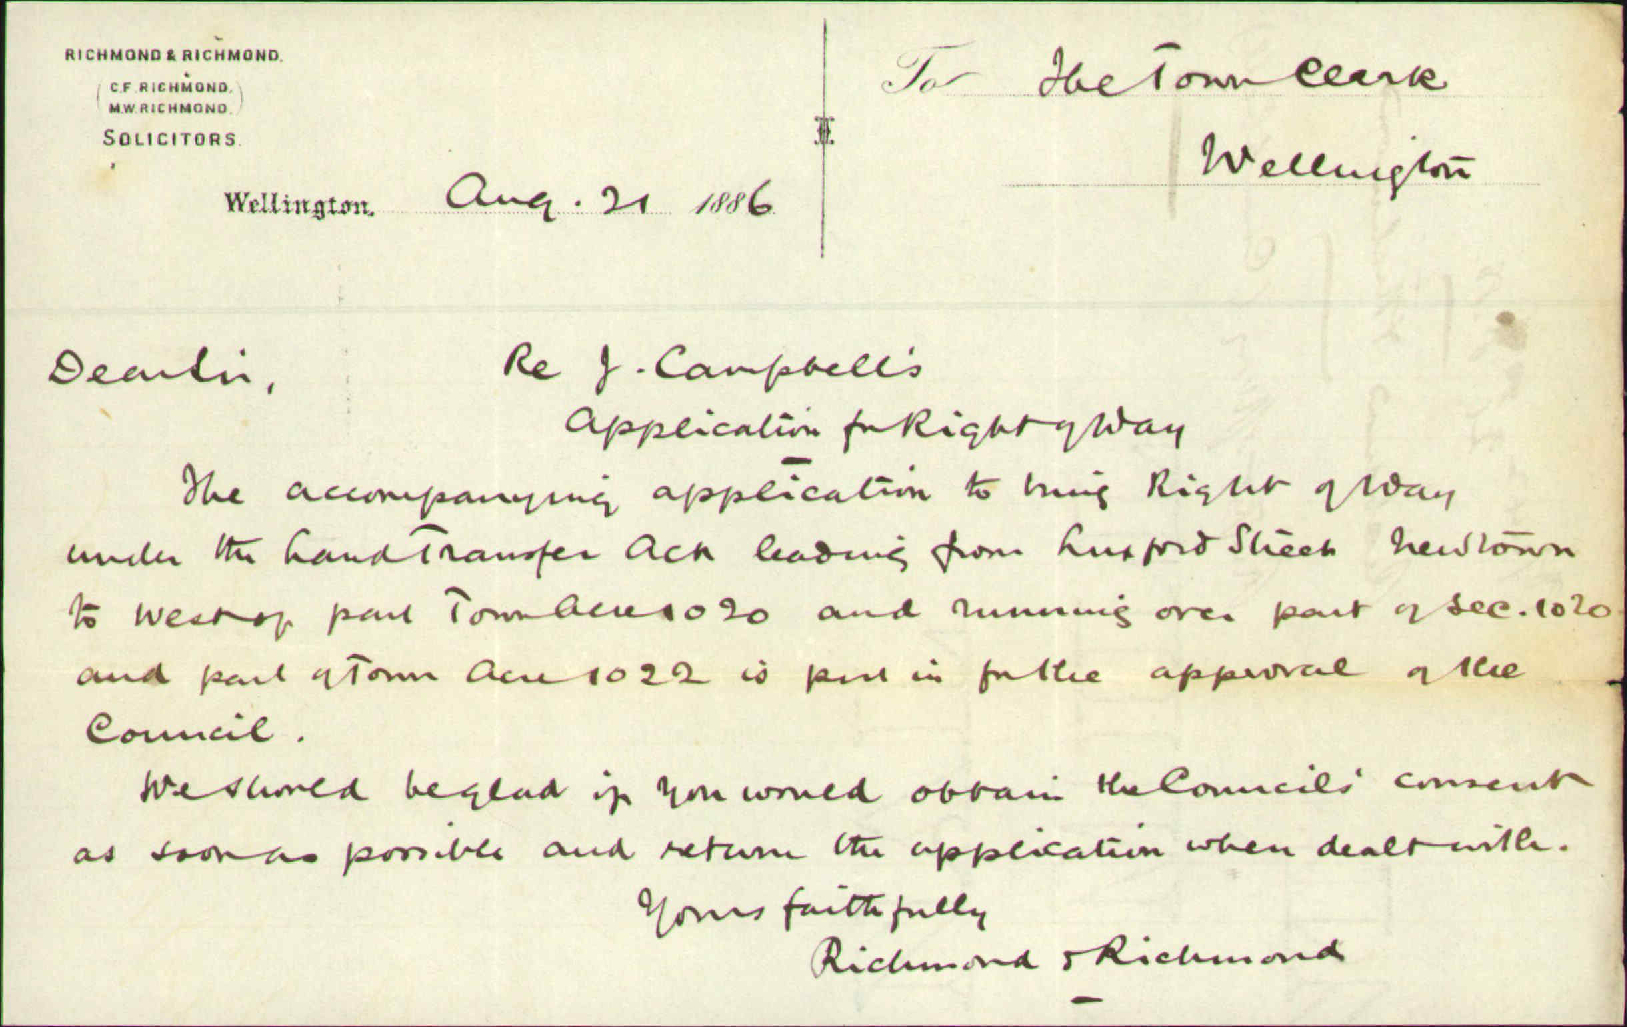 RICHMOND & RICHMOND.
C.F. RICHMOND.
M.W. RICHMOND.
SOLICITORS.
Wellington. Aug. 21 1886
To The Town Clerk
Wellington
Dear Sir,
Re J. Campbell's
Application for Right of Way
The accompanying application to bring Right of Way
under the Land Transfer Act leading from Luxford Street Newtown
to West of part Town Acre 1020 and running over part of Sec. 1020
and part of Town Acre 1022 is put in for the approval of the
Council.
We should be glad if you would obtain the Councils' consent
as soon as possible and return the application when dealt with.
Yours faithfully
Richmond & Richmond